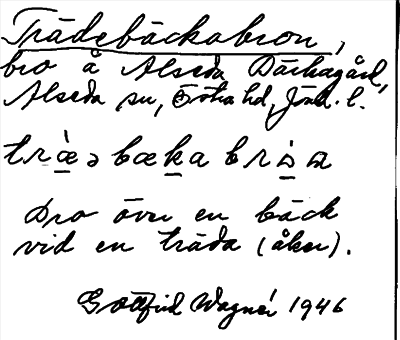 Trädebäckabron,
bro å Alseda Däckagård,
Alseda sn, Östra hd, Jönk. l.
træ̀əbæka brɷ̀n
Bro över en bäck
vid en träda (åker).
Gottfrid Wagnér 1946